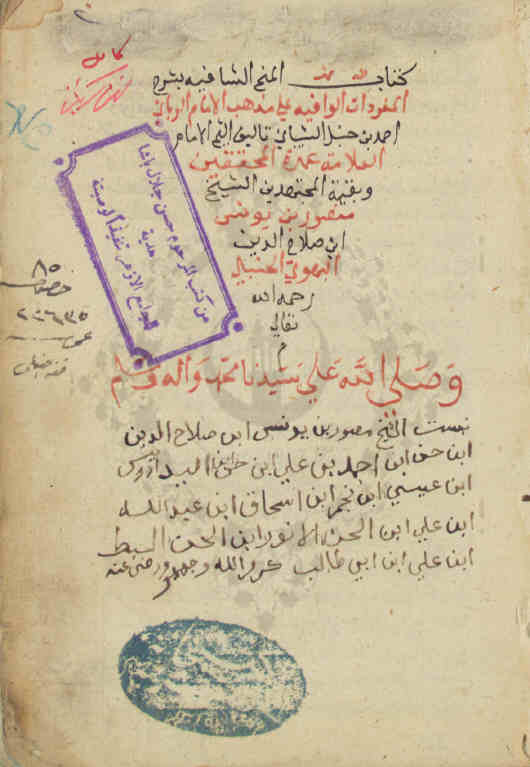 كامل
كتاب المنح الشافيه بشرح
المفردات الوافيه علي مذهب الامام الرباني
احمد بن حنبل الشيباني تاليف الشيخ الامام
العلامة عمدة المحققين
وبقية المجتهدين الشيخ
منصور بن يونس
ابن صلاح الدين
البهوتي الحنبلي
رحمه الله
تعالي
م
من كتب المرحوم حسن جلال باشا
هدية
للجامع الازهر تنفيذا لوصيته
٨٥
وصلي الله علي سيدنا محمد واله وسلم
نسب الشيخ منصور بن يونس ابن صلاح الدين
ابن حسن ابن احمد بن علي ابن السيد ادريس
ابن عيسي ابن نجم ابن اسحاق ابن عبد الله
ابن علي ابن الحسن الانور ابن الحسن السبط
ابن علي ابن ابي طالب كرم الله وجهه ورضي عنه